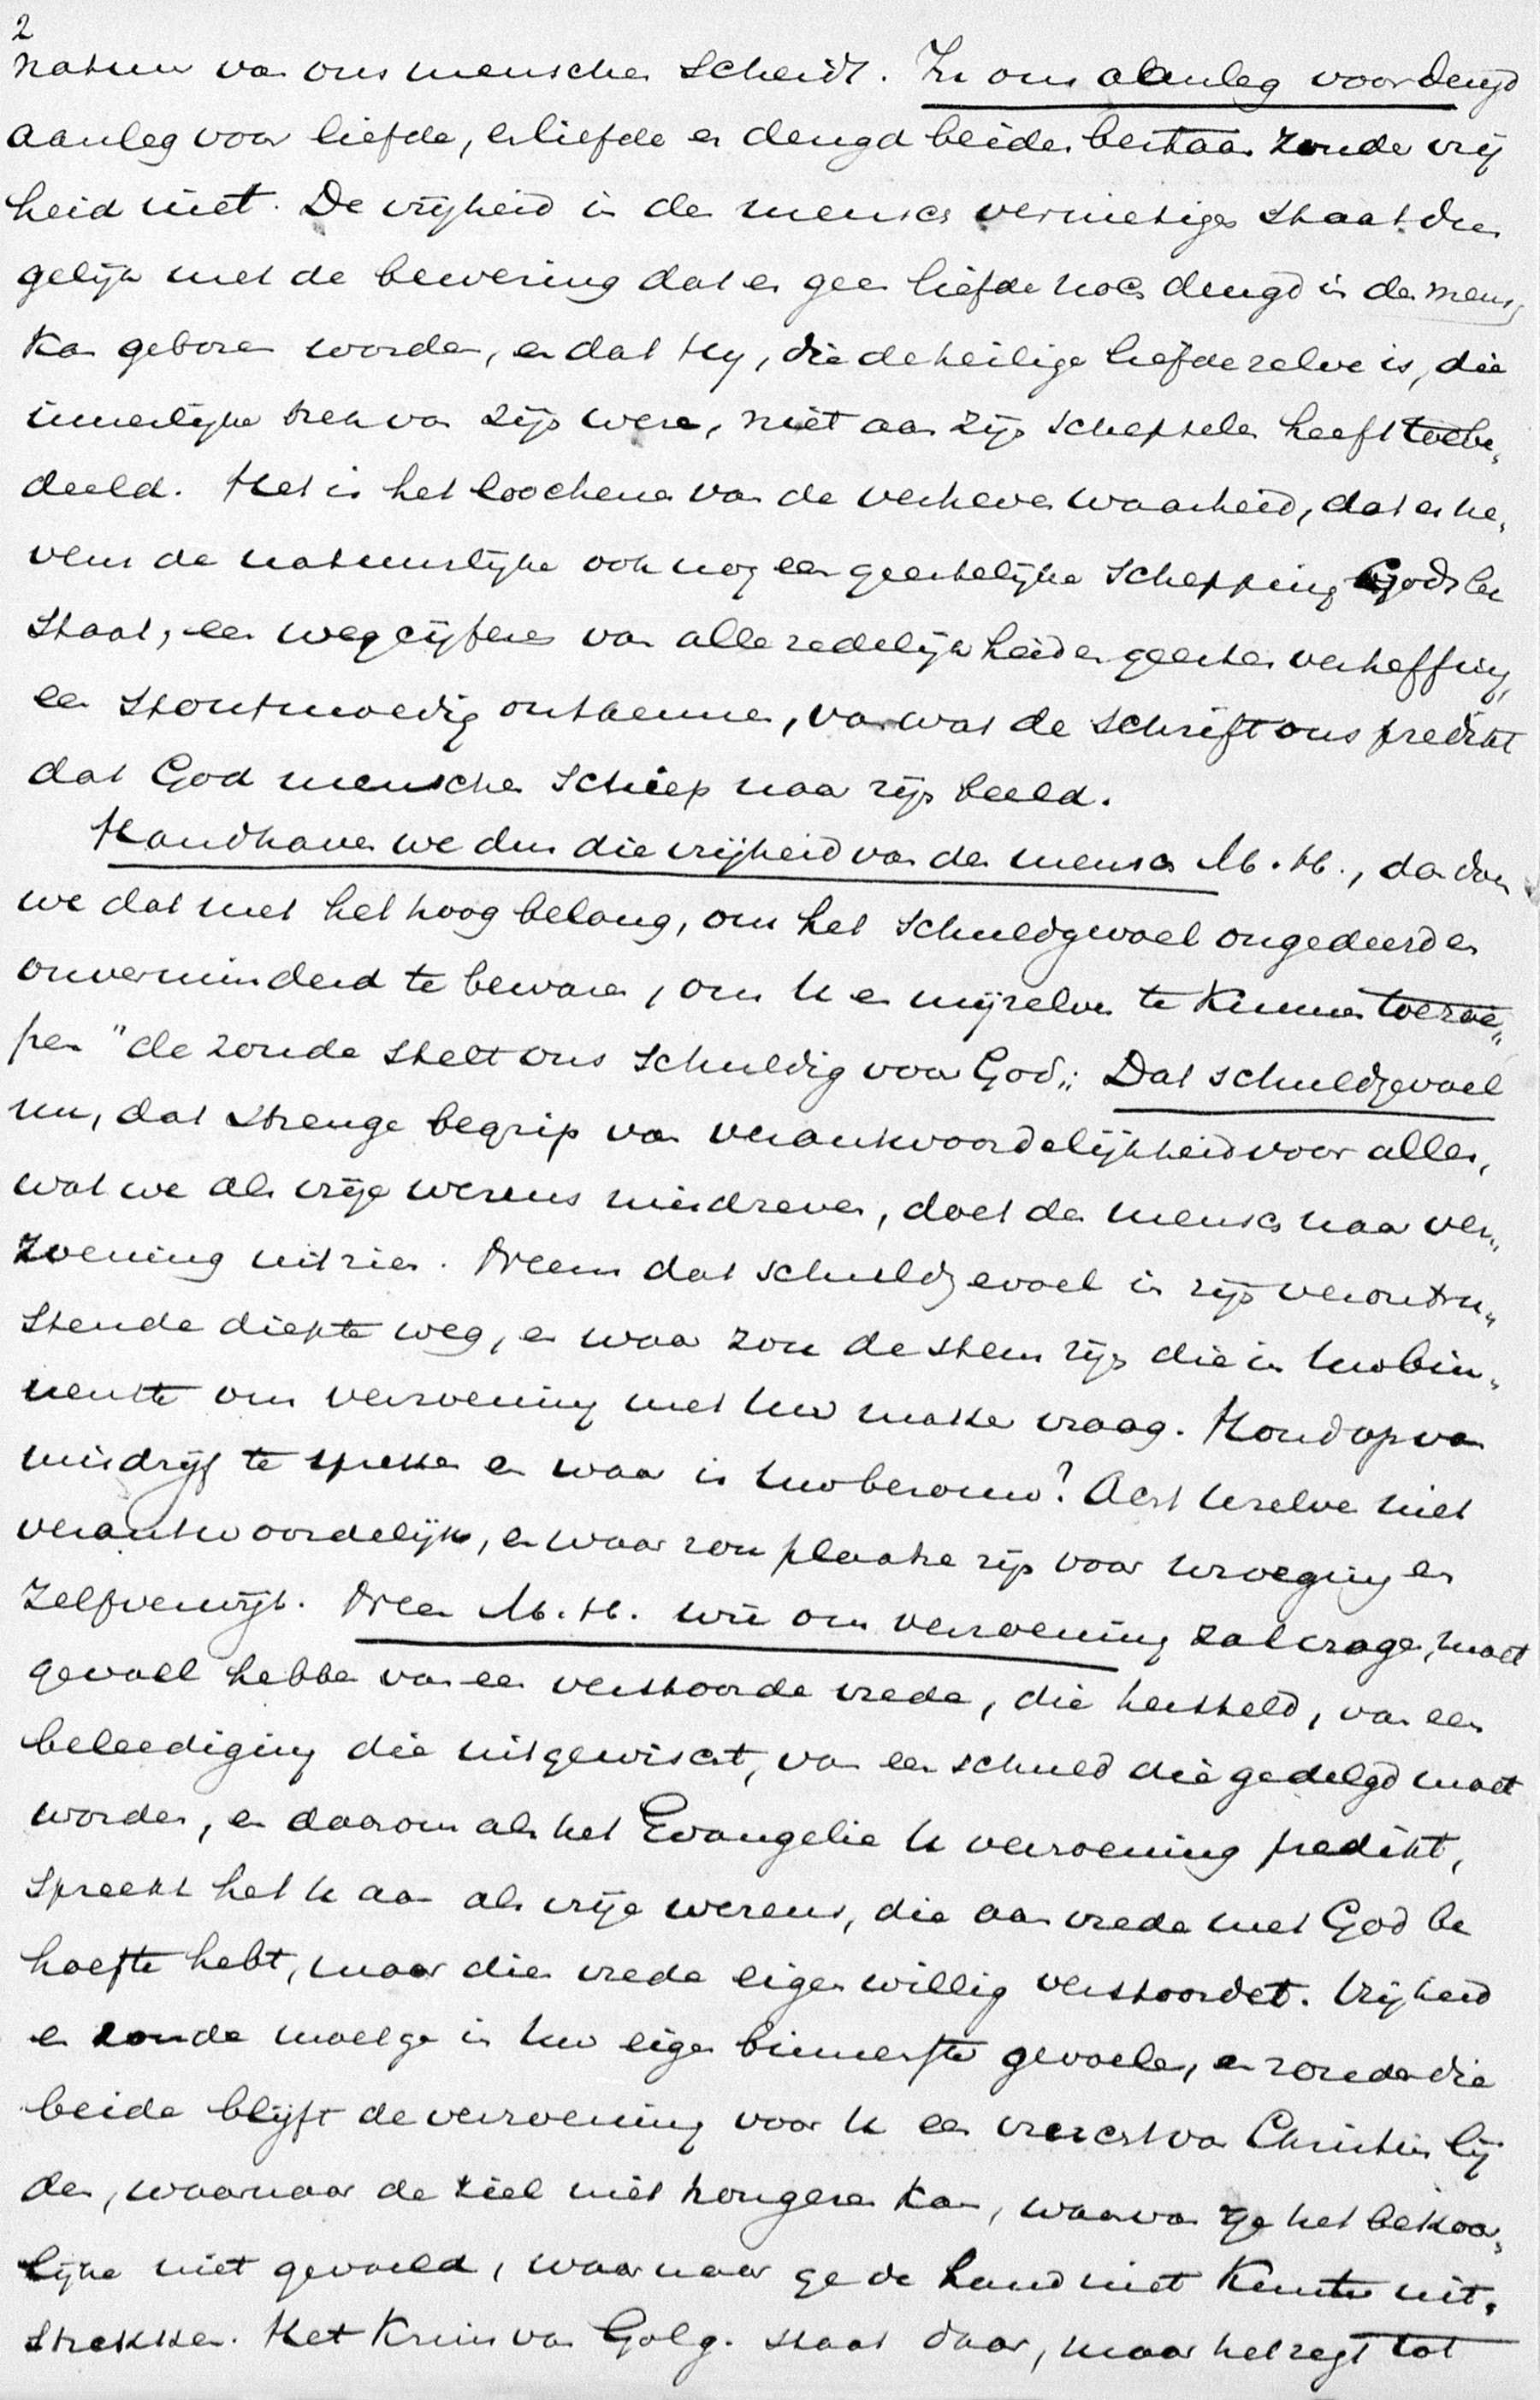 2
natuur van ons menschen scheidt. In ons aanleg voor deugd
aanleg voor liefde, en liefde en deugd beiden bestaan zonder vrij
heid niet. De vrijheid in den mensch vernietigen staat dus
gelijk met de bewering dat er geen liefde noch deugd in den mensch
kan geboren worden, en dat Hij, die de heilige liefde zelve is, die
innerlijke trek van zijn wezen, niet aan zijn schepselen heeft toebe„
deeld. Het is het loochenen van de verheven waarheid, dat er ne„
vens de natuurlijke ook nog een geestelijke schepping Gods be
staat, een wegcijferen van alle redelijkheid en geestesverheffing,
een stoutmoedig ontkennen, van wat de schrift ons predikt
dat God menschen schiep naar zijn beeld.
Handhaven we dus die vrijheid van den mensch M.H., dan doen
we dat met het hoog belang, om het schuldgevoel ongedeerd en
onverminderd te bewaren, om U en mijzelven te kunnen toeroe„
pen "de zonde stelt ons schuldig voor God„: Dat schuldgevoel
nu, dat strenge begrip van verantwoordelijkheid voor alles,
wat we als vrije wezens misdreven, doet den mensch naar ver„
zoening uitzien. Neem dat schuldgevoel in zijn verontru„
stende diepte weg, en waar zou de stem zijn die in Uw bin„
nenste om verzoening met Uw maker vraag. Houd op van
misdrijf te spreken en waar is Uw berouw? Acht Uzelve niet
verantwoordelijk, en waar zou plaatse zijn voor wroeging en
zelfverwijt. Neen M.H. wie om verzoening zal vragen, moet
gevoel hebben van een verstoorde vrede, die hersteld, van een
beleediging die uitgewischt, van een schuld die gedelgd moet
worden, en daarom als het Evangelie U verzoening predikt,
spreekt het U aan als vrije wezens, die aan vrede met God be
hoefte hebt, maar dien vrede eigenwillig verstoordet. Vrijheid
en zonde moet ge in Uw eigen binnenste gevoelen, en zonder die
beide blijft de verzoening voor U een vrucht van Christus lij
den, waarnaar de ziel niet hongeren kan, waarvan ge het bekoor„
lijke niet gevoeld, waarnaar ge de hand niet kunter uit„
strekken. Het Kruis van Golg. staat daar, maar het zegt tot